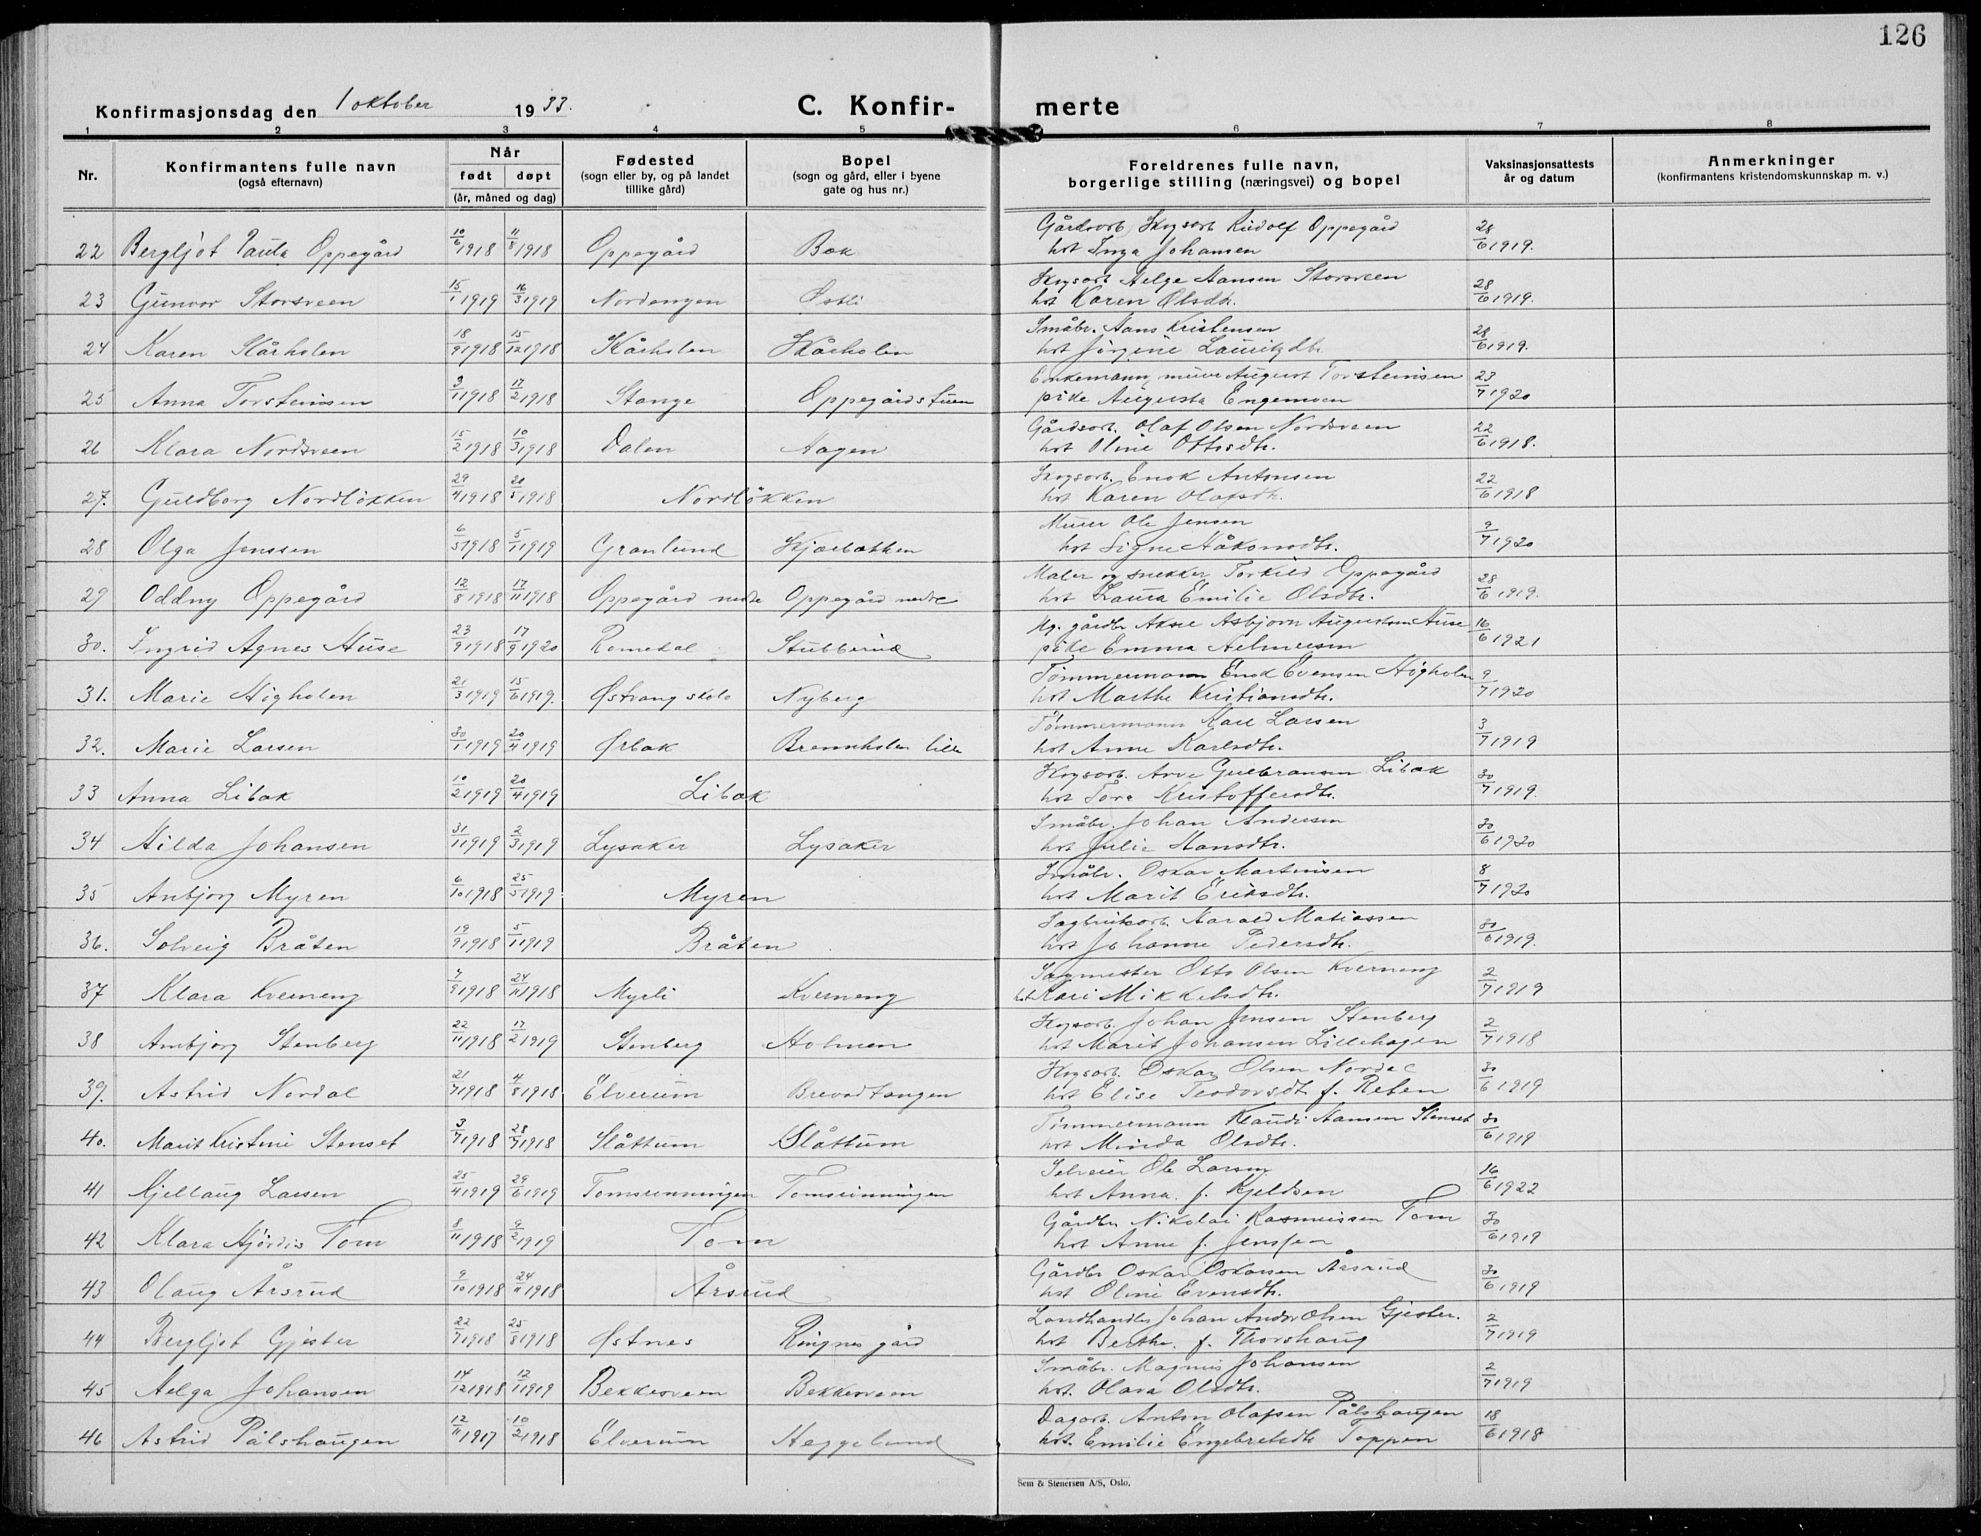 126
Konfirmasjonsdag den 1 oktober 1933. C. Konfir- merte
1 2 3 4 5 6 7 8
Nr. Konfirmantens fulle navn (også efternavn) Når født døpt (år, måned og dag) Fødested (sogn eller by, og på landet tillike gård) Bopel (sogn og gård, eller i byene gate og hus nr.) Foreldrenes fulle navn, borgerlige stilling (næringsvei) og bopel Vaksinasjonsattests år og datum Anmerkninger (konfirmantens kristendomskunnskap m. v.)
Gårdsarb. Skogsarb. Rudolf Oppegård
22 Bergljot Paula Oppegård 10/6 1918 11/8 1918 Oppegård Bak hst Inga Johansen 28/6 1919.
Skogsarb. Helge Hansen Storsveen
23 Gunvor Storsveen 15/1 1919 16/3 1919 Nordengen Østli hst Karen Olsdtr. 28/6 1919.
Småbr. Hans Kristensen
24 Karen Skårholen 18/9 1918 15/12 1918 Skårholen Skårholen hst Jørgine Lauritzdtr. 28/6 1919.
Enkemann, murer August Torsteinsen
25 Anna Torsteinsen 3/1 1918 17/2 1918 Stange Oppegårdstuen pike Augusta Engemoen 23/7 1920
Gårdsarb. Olaf Olsen Nordsveen
26 Klara Nordsveen 15/2 1918 10/3 1918 Dalen Hagen hst Oline Ottosdtr. 22/6 1918.
Skogsarb. Enok Antonsen
27. Guldborg Nordløkken 29/4 1918 20/5 1918 Nordløkken hst Karen Olafsdtr. 22/6 1918
Murer Ole Jensen
28 Olga Jenssen 6/5 1918 5/1 1919 Granlund Skjærbakken hst Signe Håkonsdtr. 9/7 1920
Maler og snekker Torkild Oppegård
29 Oddny Oppegård 12/8 1918 17/11 1918 Oppegård nedre Oppegård nedre hst Laura Emilie Olsdtr. 28/6 1919.
Ug. gårdbr. Aksel Asbjørn Augustsen Huse
30. Ingrid Agnes Huse 23/9 1918 17/9 1920 Romedal Stubberud pike Emma Helmersen 16/6 1921
Tømmermann Enok Evensen Høgholen
31. Marie Høgholen 21/3 1919 15/6 1919. Østvang skole Nyberg hst Marthe Kristiansdtr. 9/7 1920
Tømmermann Karl Larsen
32. Marie Larsen 30/1 1919 20/4 1919 Ørbak Brennholen lille hst Anne Karlsdtr. 3/7 1919
Skogsarb. Arve Gulbransen Libak
33 Anna Libak 10/2 1919 20/4 1919 Libak hst Tora Kristoffersdtr. 30/7 1919.
Småbr. Johan Andersen
34 Hilda Johansen 31/1 1919 2/3 1919 Lysaker Lysaker hst Julie Hansdtr. 30/6 1920
Småbr. Oskar Martinsen
35 Anbjørg Myren 6/10 1918 25/5 1919. Myren hst Marit Eriksdtr. 8/7 1920
Sagbruksarb. Harald Matiassen
36. Solveig Bråten 19/9 1918 5/1 1919 Bråten hst Johanne Pedersdtr. 30/6 1919.
Sagmester Otto Olsen Kverneng
37 Klara Kverneng 7/9 1918 24/11 1918 Myrli Kverneng hst Kari Mikkelsdtr. 2/7 1919
Skogsarb. Johan Jensen Stenberg
38 Anbjørg Stenberg 22/11 1918 17/2 1919 Stenberg Holmen hst Marit Johansen Lillehagen 2/7 1918
Skogsarb. Oskar Olsen Nordal
39. Astrid Nordal 21/7 1918 4/8 1918 Elverum Brevadtangen hst Elise Teodorsdtr. f. Reten 30/6 1919
Tømmermann Klaudi Hansen Stenset
40. Marit Kristine Stenset 3/7 1918 28/7 1918 Slåttum Slåttum hst Minda Olsdtr. 30/6 1919
Selveier Ole Larsen
41 Kjellaug Larsen 25/4 1919 29/6 1919 Tomsrunningen Tomsrunningen hst Anna f. Kjeldsen 16/6 1922
Gårdbr. Nikolai Rasmussen Tom
42 Klara Hjørdis Tom 8/11 1918 9/2 1919 Tom hst Anne f. Jenssen 30/6 1919
Gårdbr Oskar Oskarsen Årsrud
43 Olaug Årsrud 9/10 1918 24/11 1918 Årsrud hst Oline Evensdtr. 30/6 1919
Landhandler Johan Anders Olsen Gjester.
44 Bergljot Gjester 22/7 1918 25/8 1918 Østnes Ringnes gård hst Berthe f. Thorshaug 2/7 1919
Småbr. Magnus Johansen
45 Helga Johansen 14/12 1918 12/1 1919 Bekkesveen Bekkesveen hst. Olava Olsdtr. 2/7 1919
Dagarb. Anton Olafsen Pålshaugen
46 Astrid Pålshaugen 12/11 1917 10/2 1918 Elverum Heggelund hst. Emilie Engebretsdtr. Toppen 18/6 1918
Sem & Stenersen A/S, Oslo.